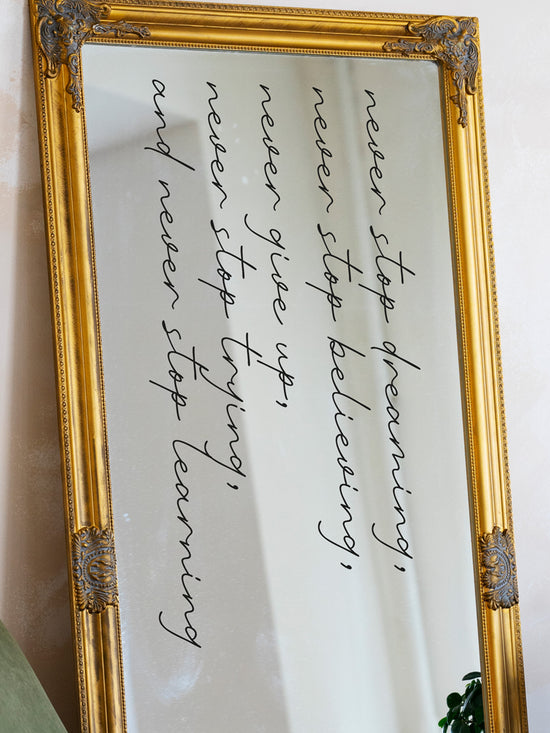 never stop dreaming,
never stop believing,
never give up,
never stop trying,
and never stop learning